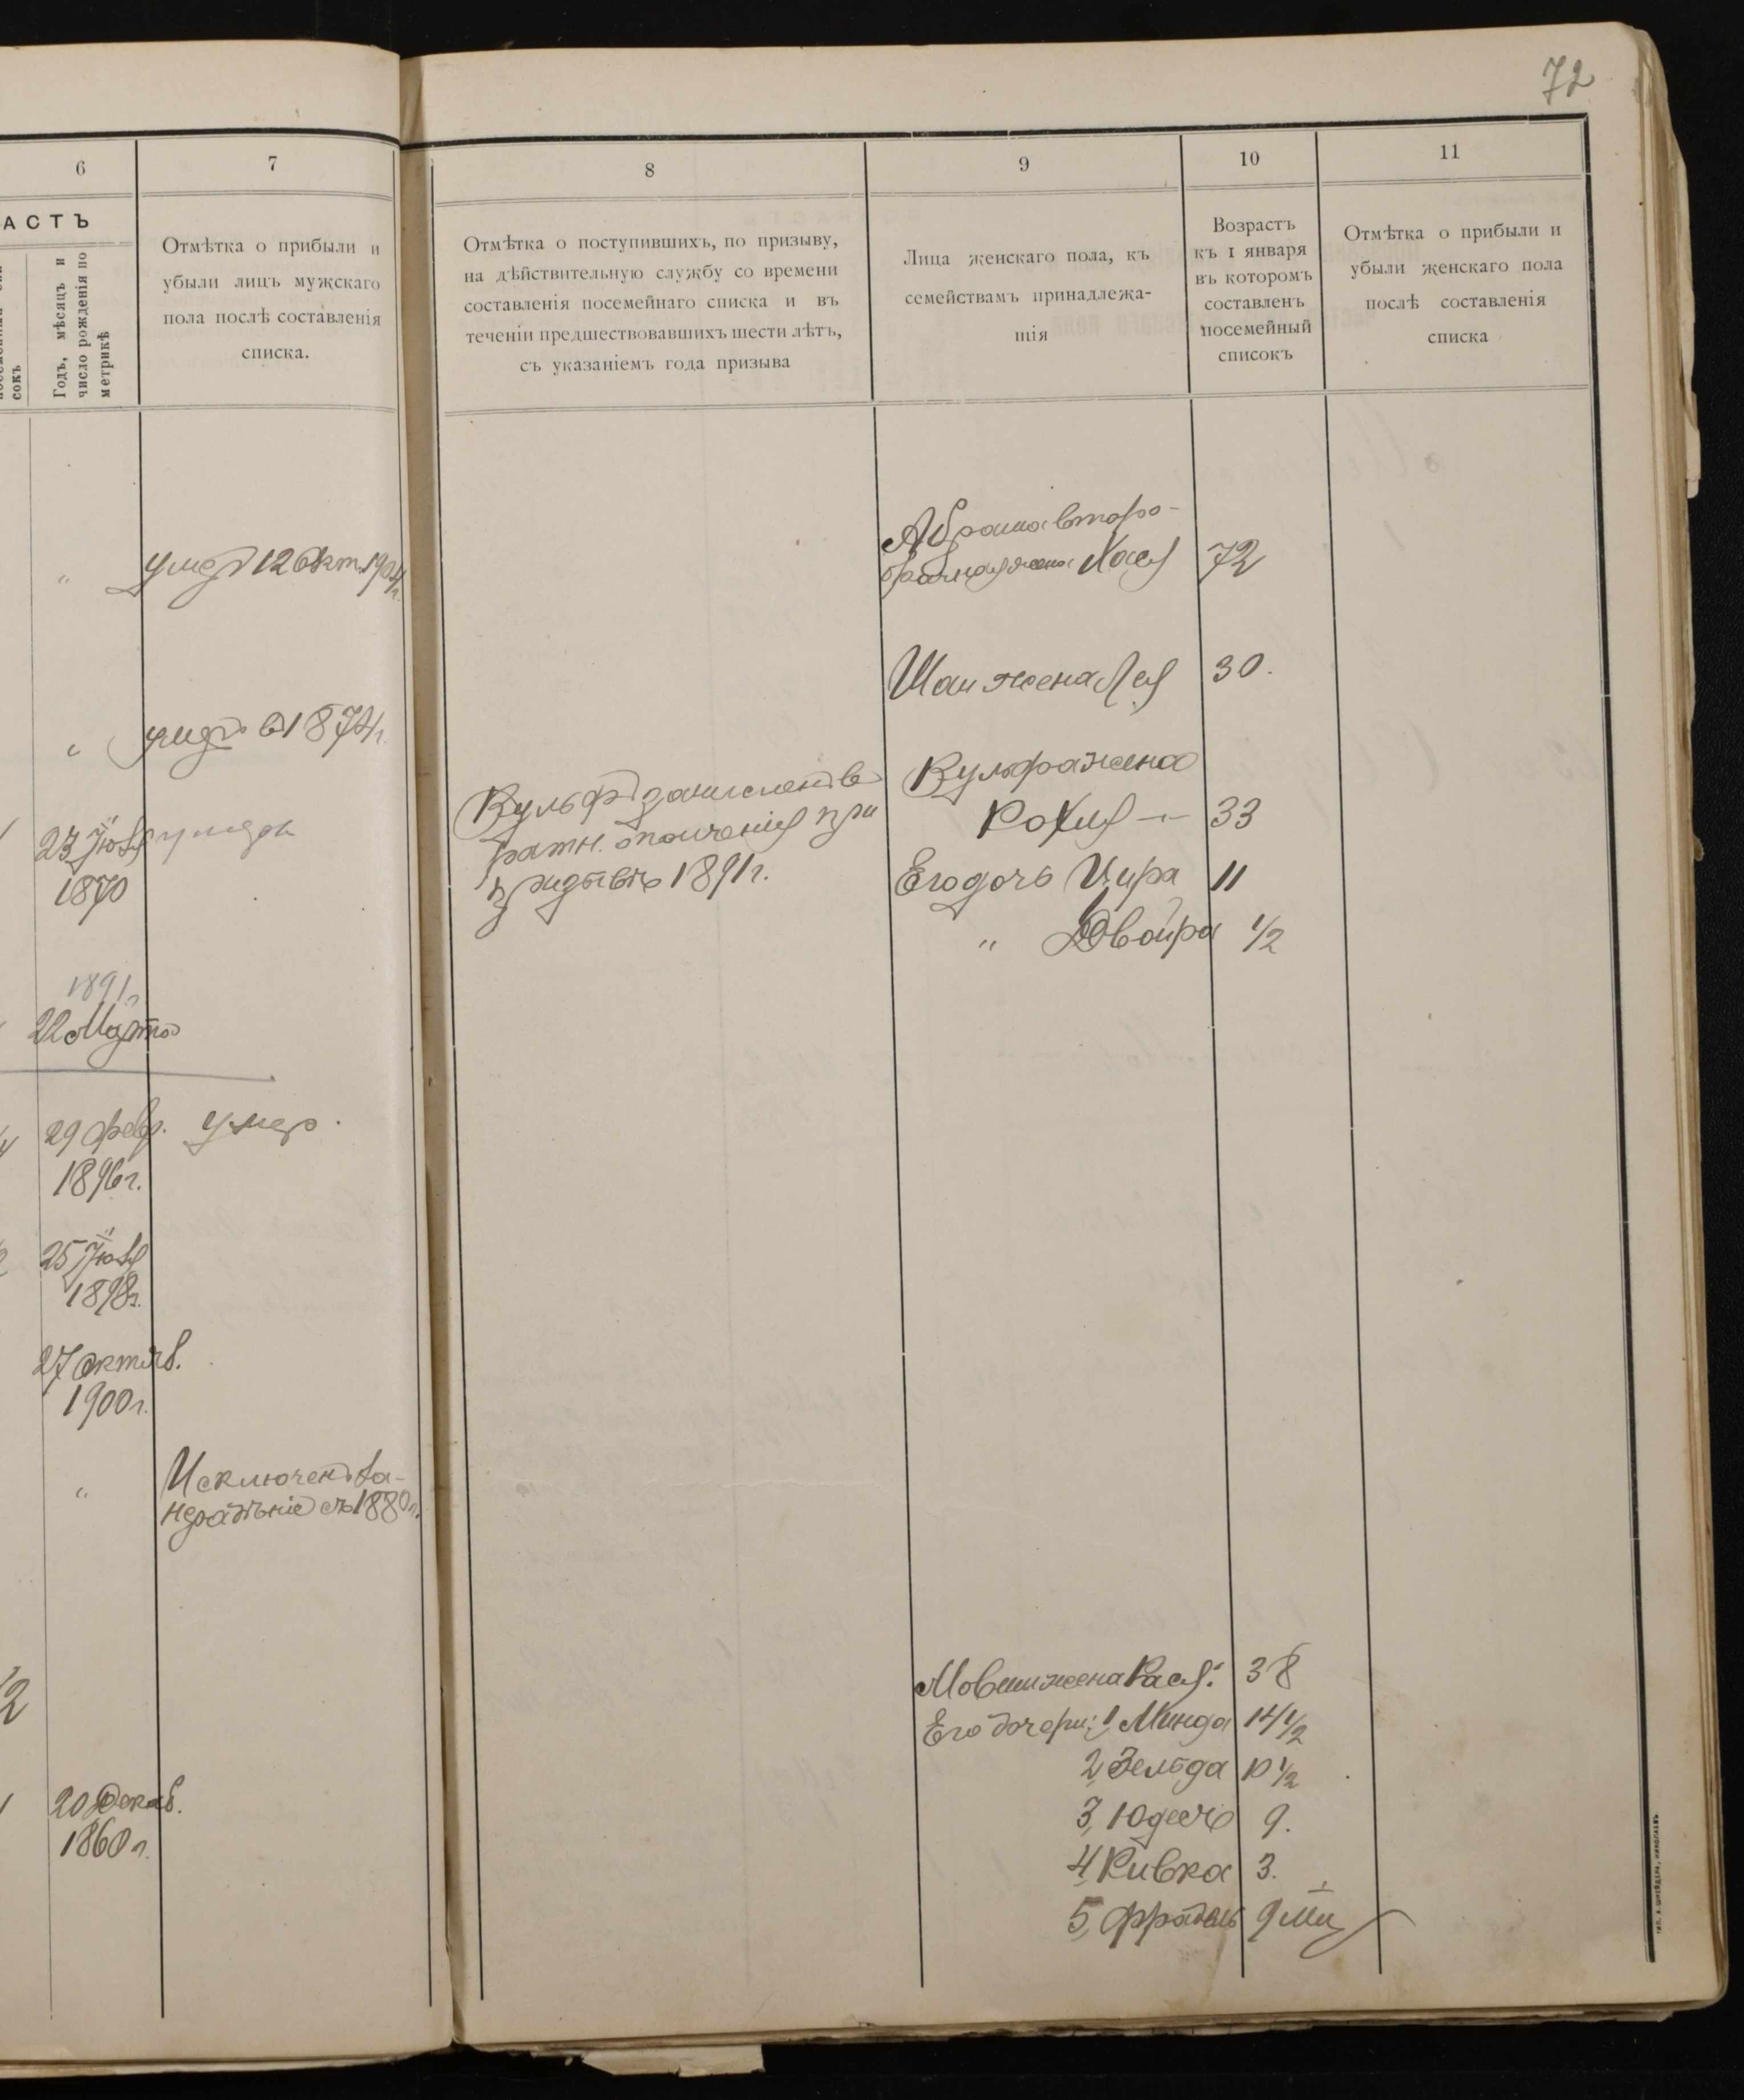 72
6
7
8
9
10
11
АСТЪ
сокъ
Годъ, мѣсяцъ и
число рожденія по
метрикѣ
Отмѣтка о прибыли и
убыли лицъ мужскаго
пола послѣ составленія
списка.
Отмѣтка о поступившихъ, по призыву,
на дѣйствительную службу со времени
составленія посемейнаго списка и въ
теченіи предшествовавшихъ шести лѣтъ,
съ указаніемъ года призыва
Лица женскаго пола, къ
семействамъ принадлежа-
щія
Возрастъ
къ 1 января
въ которомъ
составленъ
посемейный
списокъ
Отмѣтка о прибыли и
убыли женскаго пола
послѣ составленія
списка
" умеръ 12 Окт. 1904 г.
" умеръ въ 1874 г.
23 Іюля
1870
умеръ
1891 г.
22 Марта
29 февр. умер.
1896 г.
25 Іюля
1898 г.
27 октяб.
1900 г.
" Исключенъ за
1880 г.
20 Декаб.
1860 г.
Вульфъ зачисленъ въ
ратн. ополченія при
призывѣ 1891 г.
Абрама второ-
брачная жена Хася 72
Шаи жена Лея 30.
Вульфа жена
Рохля — 33
Его дочь Цира 11
" Двойра 1/2
Мовши жена Рася. 38
Его дочери: 1, Минда 14 1/2
2, Зельда 10 1/2
3, Юдесъ 9.
4, Ривка 3.
5, 9 м.